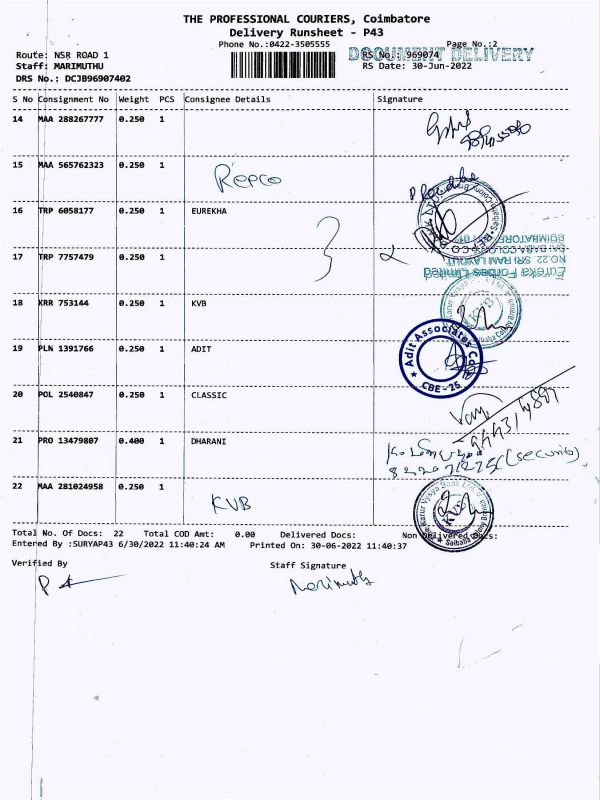 THE PROFESSIONAL COURIERS, Coimbatore
Delivery Runsheet - P43
Phone No.:0422-3505555
Page No.:2
DOCUMENT DELIVERY
Route: NSR ROAD 1
RS No.: 969074
Staff: MARIMUTHU
RS Date: 30-Jun-2022
DRS No.: DCJB96907402
S No Consignment No Weight PCS Consignee Details Signature
14 MAA 288267777 0.250 1
15 MAA 565762323 0.250 1 Repco
16 TRP 6058177 0.250 1 EUREKHA
17 TRP 7757479 0.250 1
Eureka Forbes Limited
NO.22, SRI RAM LAYOUT
COIMBATORE
18 KRR 753144 0.250 1 KVB
19 PLN 1391766 0.250 1 ADIT
Adit Associates
CBE-25
20 POL 2540847 0.250 1 CLASSIC
21 PRO 13479807 0.400 1 DHARANI
(security)
22 MAA 281024958 0.250 1 KVB
Total No. Of Docs: 22 Total COD Amt: 0.00 Delivered Docs: Non Delivered Docs:
Entered By :SURYAP43 6/30/2022 11:40:24 AM Printed On: 30-06-2022 11:40:37
Verified By Staff Signature
Marimuthu